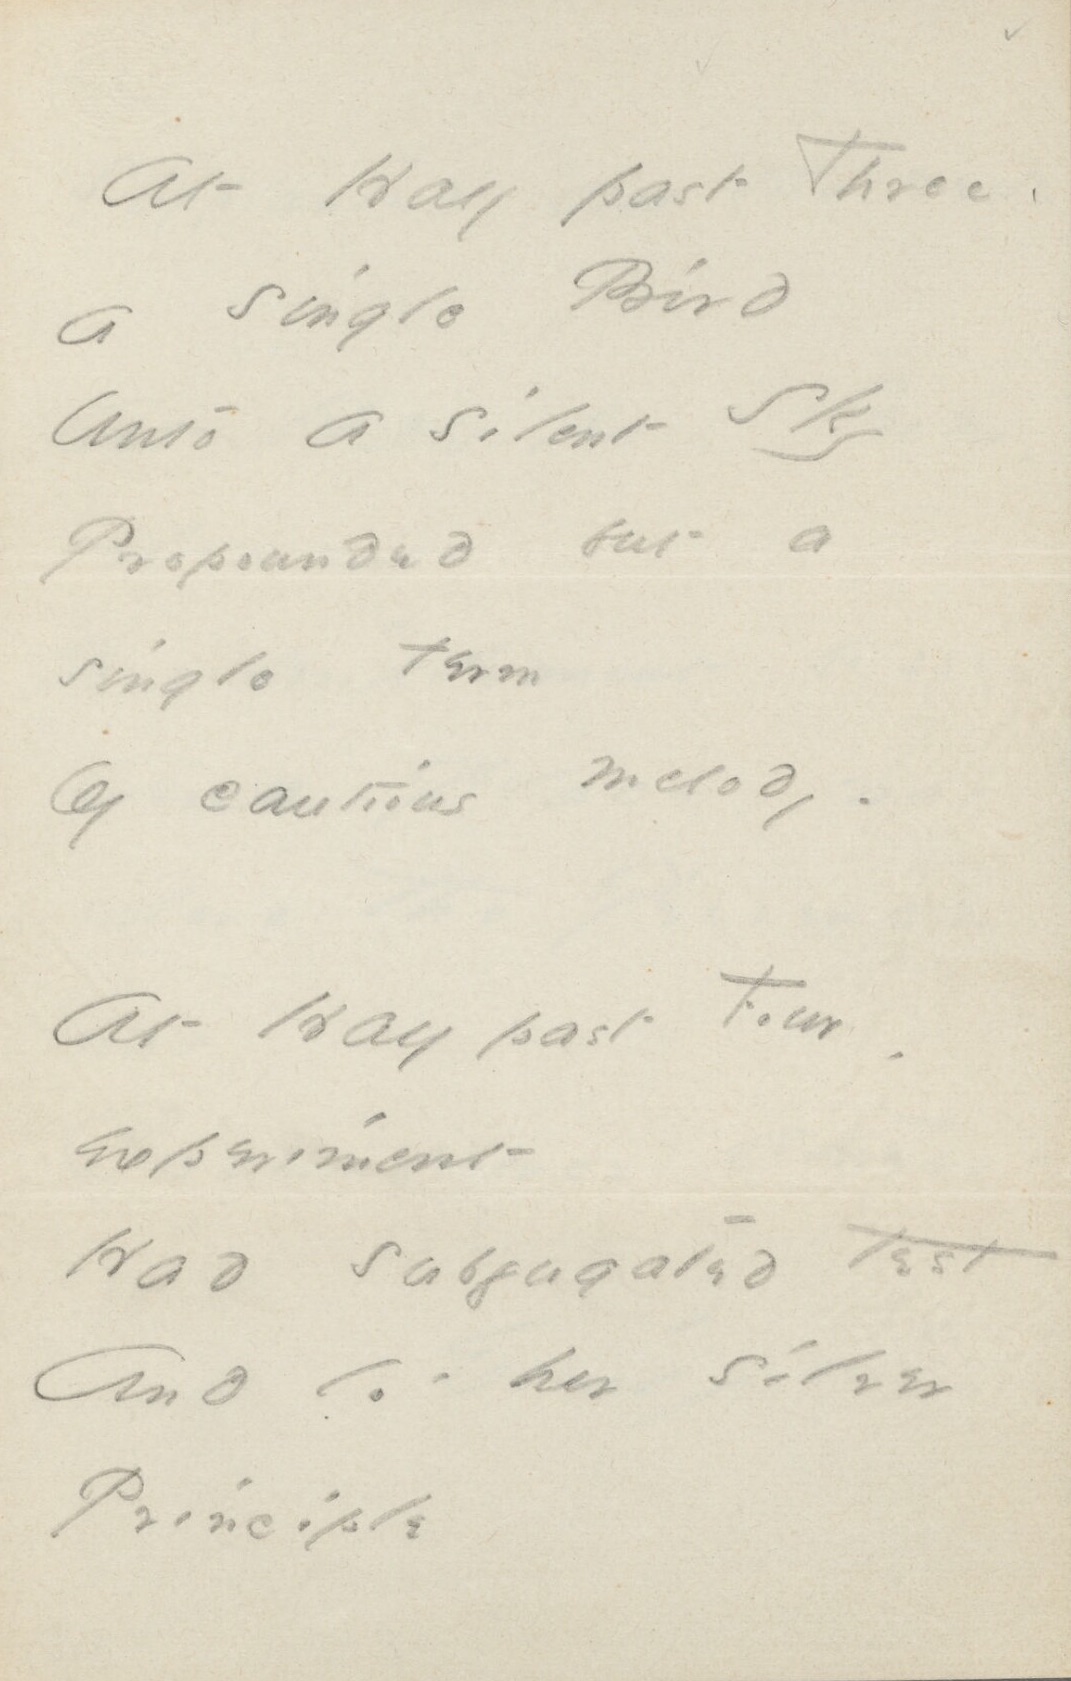 At Half past Three.
a single Bird
Unto a silent Sky
Propounded but a
single term
Of cautious melody.
At Half past Four.
Experiment
Had subjugated test
And lo. her silver
Principle